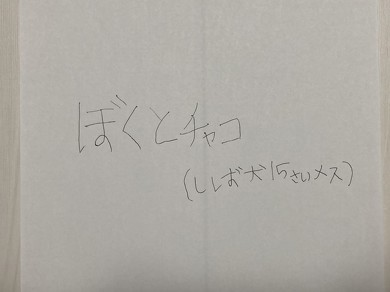 ぼくとチャコ
(ししお犬15さいメス)